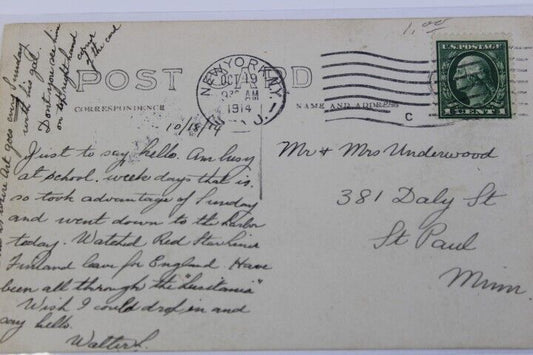 1.00
U.S. POSTAGE
CENTS
NEW YORK, N.Y.
OCT 19
9 30 AM
1914
1
C
POST
RD
CORRESPONDENCE
NAME AND ADDRESS
10/18/14
Just to say hello. Am busy
at school, week days that is,
so took advantage of Sunday
and went down to the harbor
today. Watched Red Star liner
Finland leave for England. Have
been all through the "Lusitania"
Wish I could drop in and
say hello.
Walter L.
Mr + Mrs Underwood
381 Daly St
St Paul
Minn.
is where Art goes every Sunday
with his girl.
Dont you see him
on left right hand
of the card